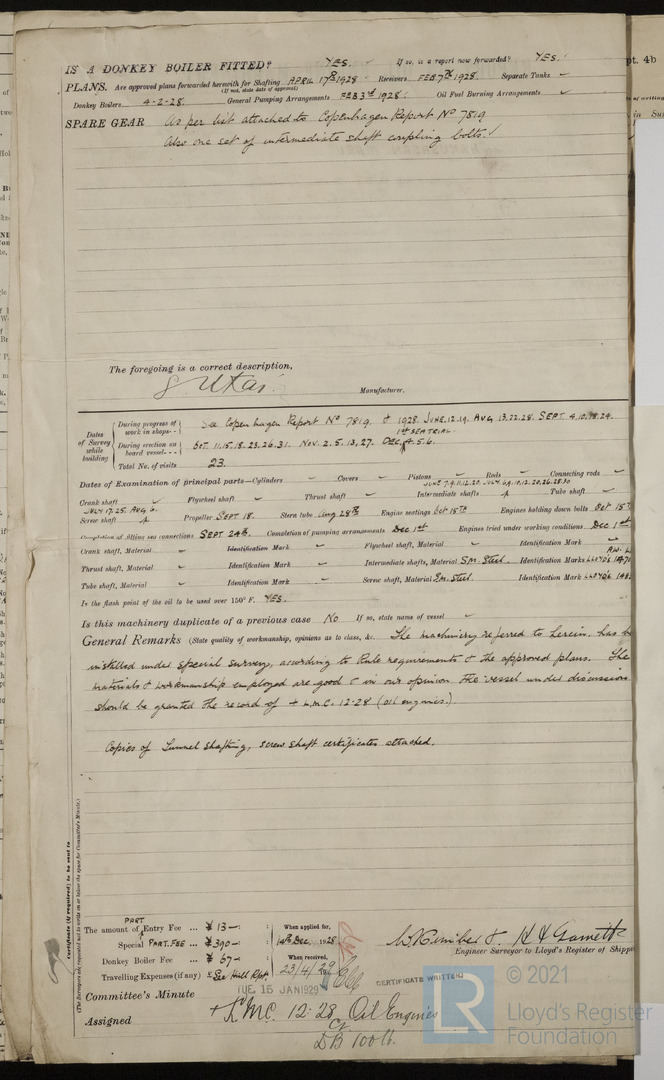 IS A DONKEY BOILER FITTED? YES. If so, is a report now forwarded? YES.
PLANS. Are approved plans forwarded herewith for Shafting APRIL 17th 1928 Receivers FEB 7th 1928. Separate Tanks ✓
(If not, state date of approval)
Donkey Boilers 4-2-28. General Pumping Arrangements FEB 3rd 1928. Oil Fuel Burning Arrangements ✓
SPARE GEAR As per list attached to Copenhagen Report No 7819
Also one set of intermediate shaft coupling bolts.
The foregoing is a correct description,
Manufacturer.
Dates of Survey while building
During progress of work in shops - - See Copenhagen Report No 7819. & 1928. JUNE. 12. 19. AUG 13. 22. 28. SEPT 4. 10. 24.
1st SEA TRIAL.
During erection on board vessel - - - OCT. 11. 15. 18. 23. 26. 31. Nov. 2. 5. 13. 27. DEC. 5. 6.
Total No. of visits 23.
Dates of Examination of principal parts—Cylinders ✓ Covers ✓ Pistons ✓ Rods ✓ Connecting rods ✓
Crank shaft ✓ Flywheel shaft ✓ Thrust shaft ✓ Intermediate shafts JUNE 7. 9. 11. 12. 20. JULY 6. 9. 11. 12. 20. 26. 28. 30 Tube shaft ✓
Screw shaft JULY 17. 25. AUG 6. Propeller SEPT 18. Stern tube Aug 28th Engine seatings Oct 18th Engines holding down bolts Oct 18th
Completion of fitting sea connections SEPT 24th. Completion of pumping arrangements Dec 1st Engines tried under working conditions Dec 1st
Crank shaft, Material ✓ Identification Mark ✓ Flywheel shaft, Material ✓ Identification Mark ✓
Thrust shaft, Material ✓ Identification Mark ✓ Intermediate shafts, Material S.M. Steel. Identification Marks LLOYDS
Tube shaft, Material ✓ Identification Mark ✓ Screw shaft, Material S.M. Steel. Identification Mark LLOYDS
Is the flash point of the oil to be used over 150° F. YES.
Is this machinery duplicate of a previous case No If so, state name of vessel ✓
General Remarks (State quality of workmanship, opinions as to class, &c. The machinery referred to herein, has
installed under special survey, according to Rule requirements & the approved plans. The
materials & workmanship employed are good & in our opinion the vessel under discussion
should be granted the record of + L.M.C. 12-28 (oil engines.)
Copies of Tunnel Shafting, screw shaft certificates attached.
Certificate (if required) to be sent to
(The Surveyors are requested not to write on or below the space for Committee's Minute.)
PART
The amount of Entry Fee ... £ 13 –: When applied for,
Special PART. FEE ... £ 390 –: 14th Dec. 1928.
Donkey Boiler Fee ... £ 67 –: When received,
Travelling Expenses (if any) £ See Hull Rpt 23/4/29
Engineer Surveyor to Lloyd's Register of Shipp
Committee's Minute TUE. 15 JAN 1929
CERTIFICATE WRITTEN
Assigned + LMC. 12.28 Oil Engines
DB 100 lb.
LR
© 2021
Lloyd's Register
Foundation
pt. 4b